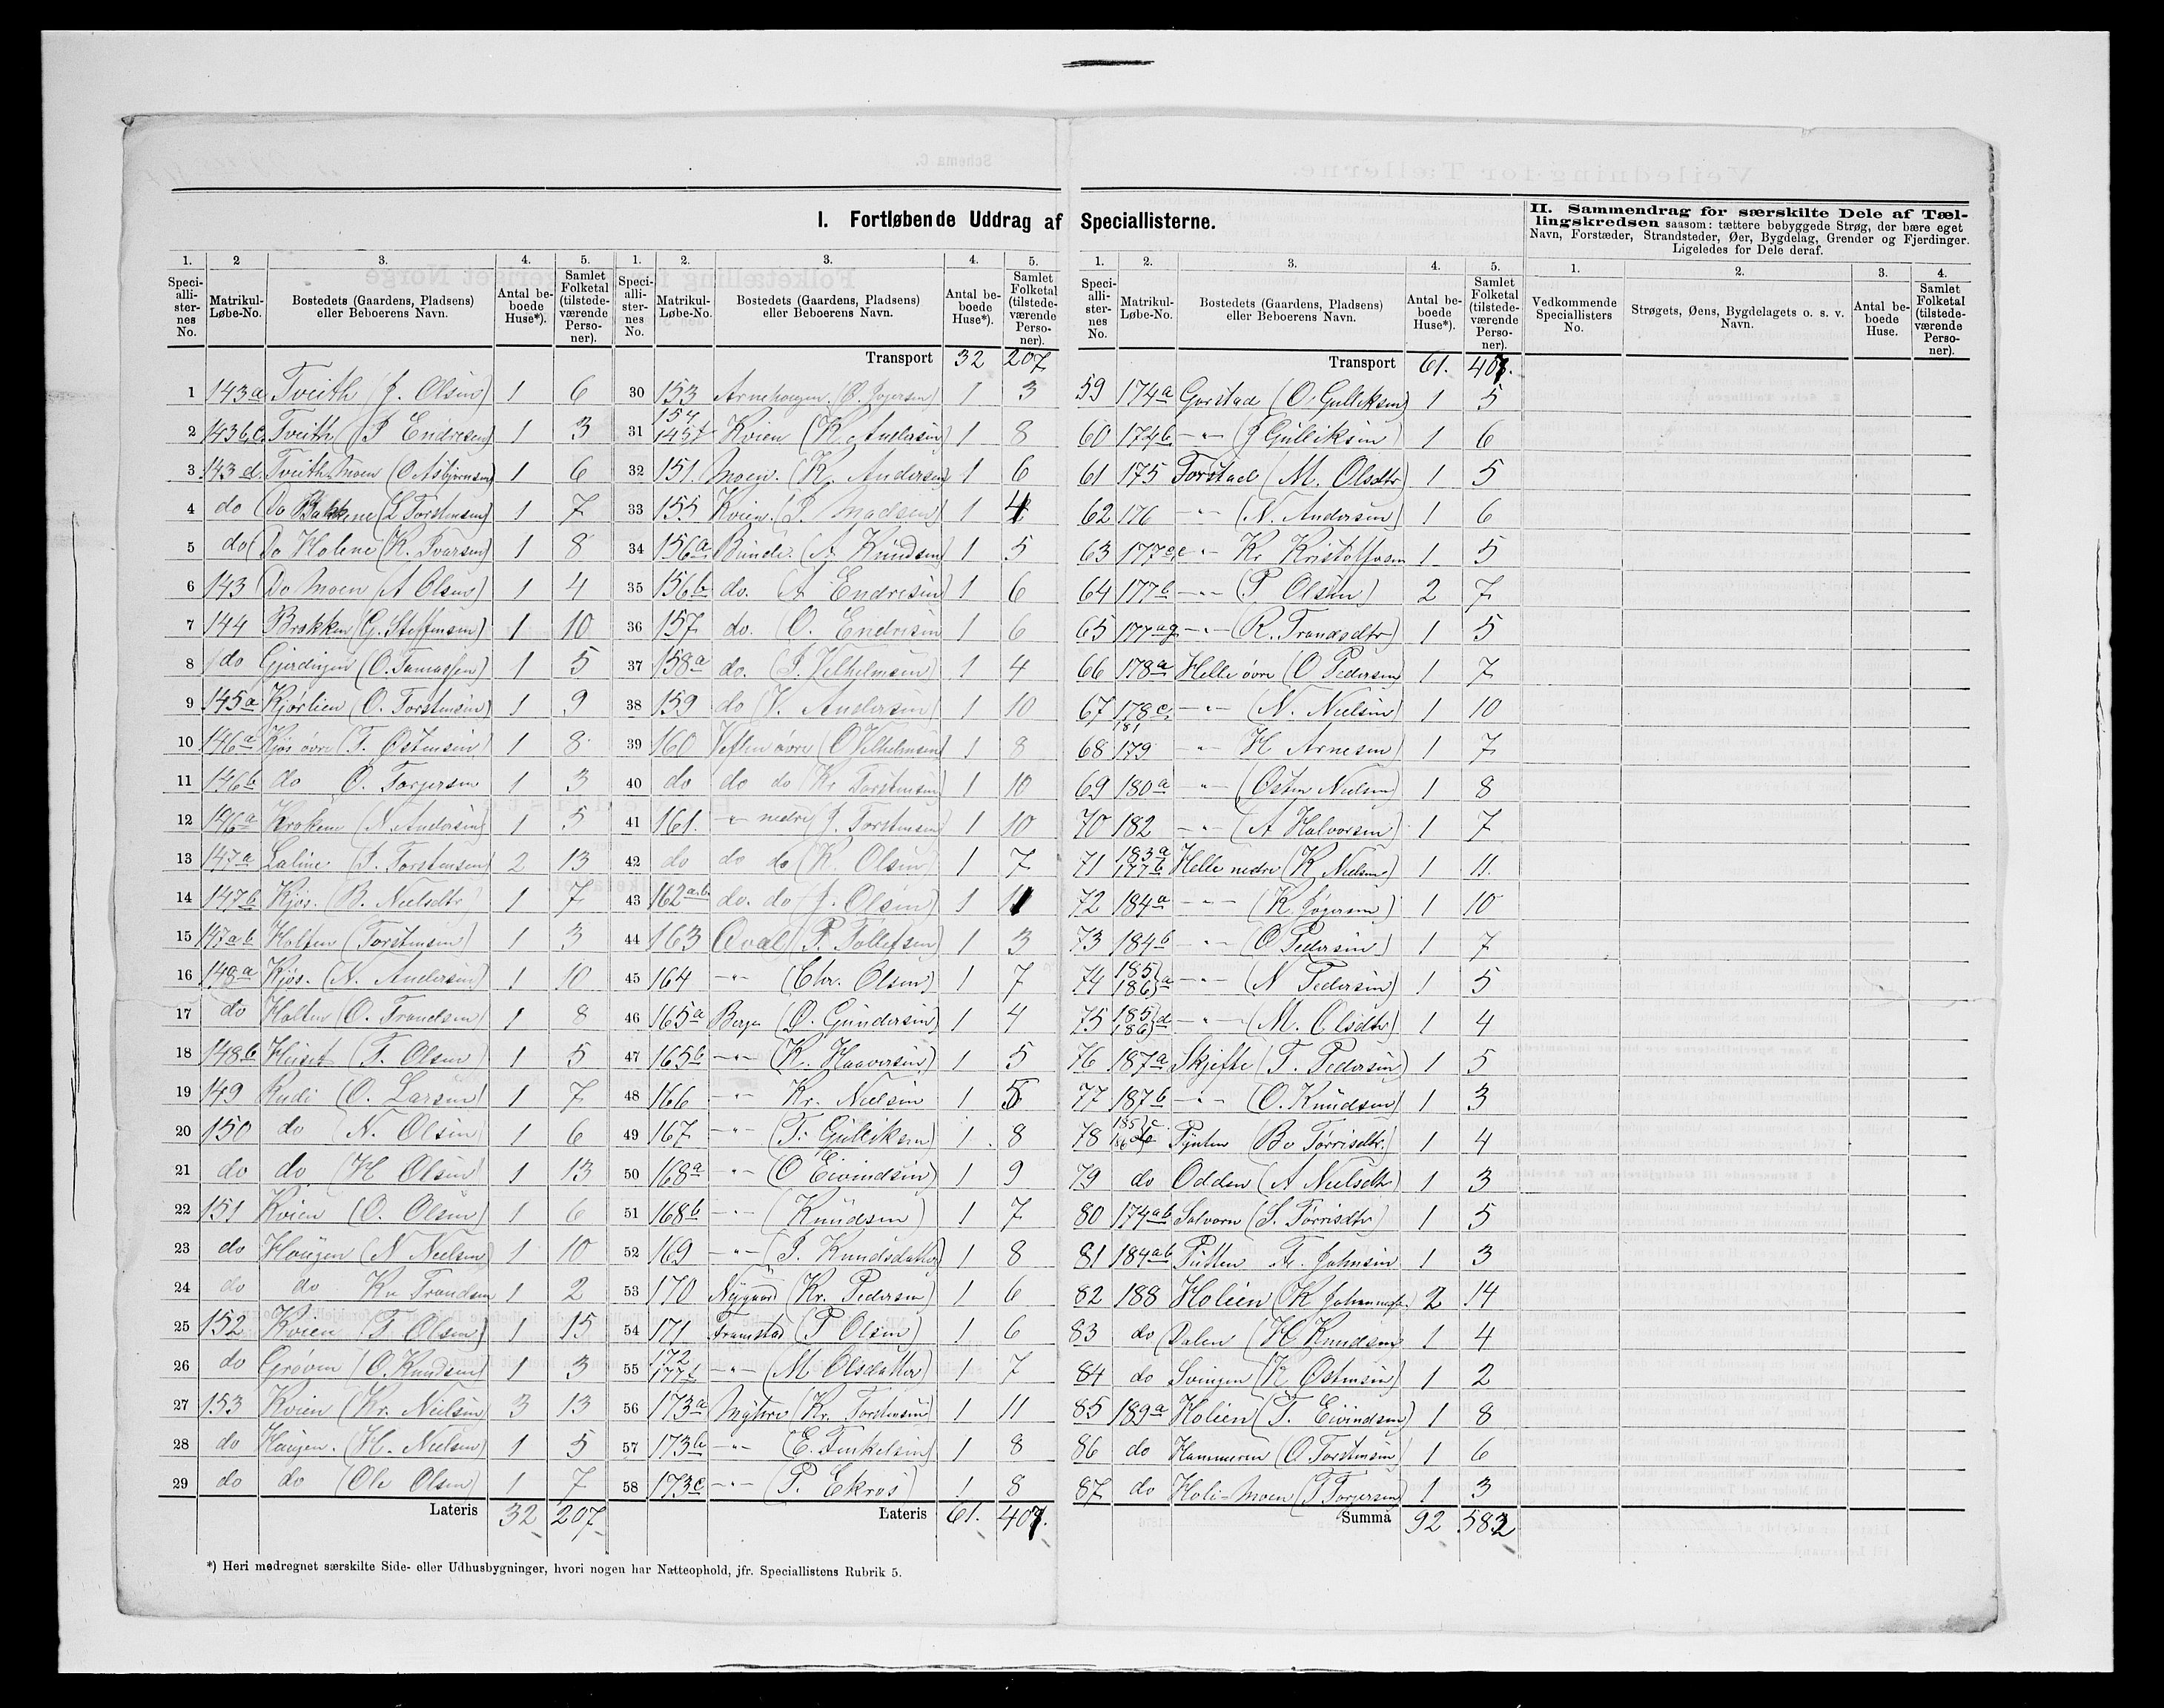 I. Fortløbende Uddrag af Speciallisterne.
II. Sammendrag for særskilte Dele af Tæl-
lingskredsen saasom: tættere bebyggede Strøg, der bære eget
Navn, Forstæder, Strandsteder, Øer, Bygdelag, Grender og Fjerdinger.
Ligeledes for Dele deraf.
1. 2 3. 4. 5.
Speciallisternes No. Matrikul-Løbe-No. Bostedets (Gaardens, Pladsens) eller Beboerens Navn. Antal beboede Huse*). Samlet Folketal (tilstedeværende Personer).
1 143a Tveith (J. Olsen) 1 6
2 143b,c Tveith (J Endresen) 1 3
3 143d. Tveith Moen (O Asbjørnsen) 1 6
4 do Do Bakkene (L Torstensen) 1 7
5 do Do Holene (K. Ivarsen) 1 8
6 143 Do Moen (A Olsen) 1 4
7 144 Brokken (G. Steffensen) 1 10
8 do Gjerdingen (O. Tomassen) 1 5
9 145a Kjørlien (O. Torstensen) 1 9
10 146a Kjøs øvre (T. Østensen) 1 8
11 146b do O. Torgersen 1 3
12 146a Kroken (N Andersen) 1 5
13 147a Laline (J. Torstensen) 2 13
14 147b Kjøs. (B. Nielsdtr) 1 7
15 147ab Holten (Torstensen) 1 3
16 148a Kjøs. (N. Andersen) 1 10
17 do Holten (O. Trondsen) 1 8
18 148b Huset (T. Olsen) 1 5
19 149 Rudi (O. Larsen) 1 7
20 150 do (N. Olsen) 1 6
21 do do (H Olsen) 1 13
22 151 Kvien (O. Olsen) 1 6
23 do Hougen (N Nielsen) 1 10
24 do do Kr Trondsen 1 2
25 152 Kvien (T Olsen) 1 15
26 do Grøven (O. Knudsen) 1 3
27 153 Kvien (Kr. Nielsen) 3 13
28 do Haugen. (H. Nielsen) 1 5
29 do do (Ole Olsen) 1 7
Lateris 32 207
1. 2. 3. 4. 5.
Speciallisternes No. Matrikul-Løbe-No. Bostedets (Gaardens, Pladsens) eller Beboerens Navn. Antal beboede Huse*). Samlet Folketal (tilstedeværende Personer).
Transport 32 207
30 153 Arnehougen (O. Jogersen) 1 3
31 154 143f Kvien (K. Andersen) 1 8
32 151. Moen. (K. Andersen) 1 6
33 155 Kvien. (P. Madsen) 1 4
34 156a Bunde. (A. Knudsen) 1 5
35 156b do. (A Endresen) 1 6
36 157 do. O. Endresen 1 6
37 158a do. (J. Vilhelmsen) 1 4
38 159 do (V. Andersen) 1 10
39 160 Veften øvre (O Vilhelmsen) 1 8
40 do do do (Kr Torstensen) 1 10
41 161. " nedre (J. Torstensen) 1 10
42 do do do (K. Olsen) 1 7
43 162a.b. do. do (J. Olsen) 1 11
44 163 Qval (P. Tollefsen) 1 3
45 164 -"- (Chr. Olsen) 1 7
46 165a Berge (O. Gundersen) 1 4
47 165b -"- (K. Haaversen) 1 5
48 166 -"- Kr. Nielsen 1 5
49 167 -"- (T. Gulliksen) 1 8
50 168a -"- (O Eivindsen) 1 9
51 168b -"- (Knudsen) 1 7
52 169 -"- (J. Knudsdatter) 1 8
53 170 Nygaard (Kr. Pedersen) 1 6
54 171 Framstad (P Olsen) 1 6
55 172 177f -"- (M Olsdatter) 1 7
56 173a Myhre (Kr. Torstensen) 1 11
57 173b -"- (E. Tinkelsen) 1 8
58 173c -"- (P. Ekros) 1 8
Lateris 61. 407.
1. 2. 3. 4. 5.
Speciallisternes No. Matrikul-Løbe-No. Bostedets (Gaardens, Pladsens) eller Beboerens Navn. Antal beboede Huse*). Samlet Folketal (tilstedeværende Personer).
Transport 61. 407.
59 174a Gorstad (O. Gulliksen) 1 5
60 174b -"- (J Gulliksen) 1 6
61 175 Forstad (M. Olsdtr) 1 5
62 176 -"- (N. Andersen) 1 6
63 177ae -"- Kr Kristoffersen 1 5
64 177b -"- (P. Olsen) 2 7
65 177ag -"- (R. Trondsdtr) 1 5
66 178a Helle øvre (O Pedersen) 1 7
67 178c. -"- (N. Nielsen) 1 10
68 181 179 -"- (H Arnesen) 1 7
69 180a -"- (Østen Nielsen) 1 8
70 182 -"- (A Halvorsen) 1 7
71 183a 177b Helle nedre (K Nielsen) 1 11.
72 184a -"- (K. Jøgersen) 1 10
73 184b -"- (O Pedersen) 1 7
74 185 186 a -"- (N Pedersen) 1 5
75 185 186 d -"- (M. Olsdtr) 1 4
76 187a Skjefte (T. Pedersen) 1 5
77 187b -"- (O. Knudsen) 1 3
78 185 186 c Pynten (Bo Torrisdtr.) 1 4
79 do Odden (A Nielsdtr) 1 3
80 174ab Solvorn (S. Torrisdtr) 1 5
81 184ab Putten Fr. Johnsen 1 3
82 188 Holien (K Johannesen.) 2 14
83 do Dalen (H Knudsen) 1 4
84 do Svingen (K Østensen) 1 2
85 189a Holien (T. Eivindsen) 1 8
86 do Hammeren (O Torstensen) 1 6
87 do Holi-Moen (T Torgersen) 1 3
Summa 92 582
1. 2. 3. 4.
Vedkommende Speciallisters No. Strøgets, Øens, Bygdelagets o. s. v. Navn. Antal beboede Huse. Samlet Folketal (tilstedeværende Personer).
*) Heri medregnet særskilte Side- eller Udhusbygninger, hvori nogen har Natteophold, jfr. Speciallistens Rubrik 5.